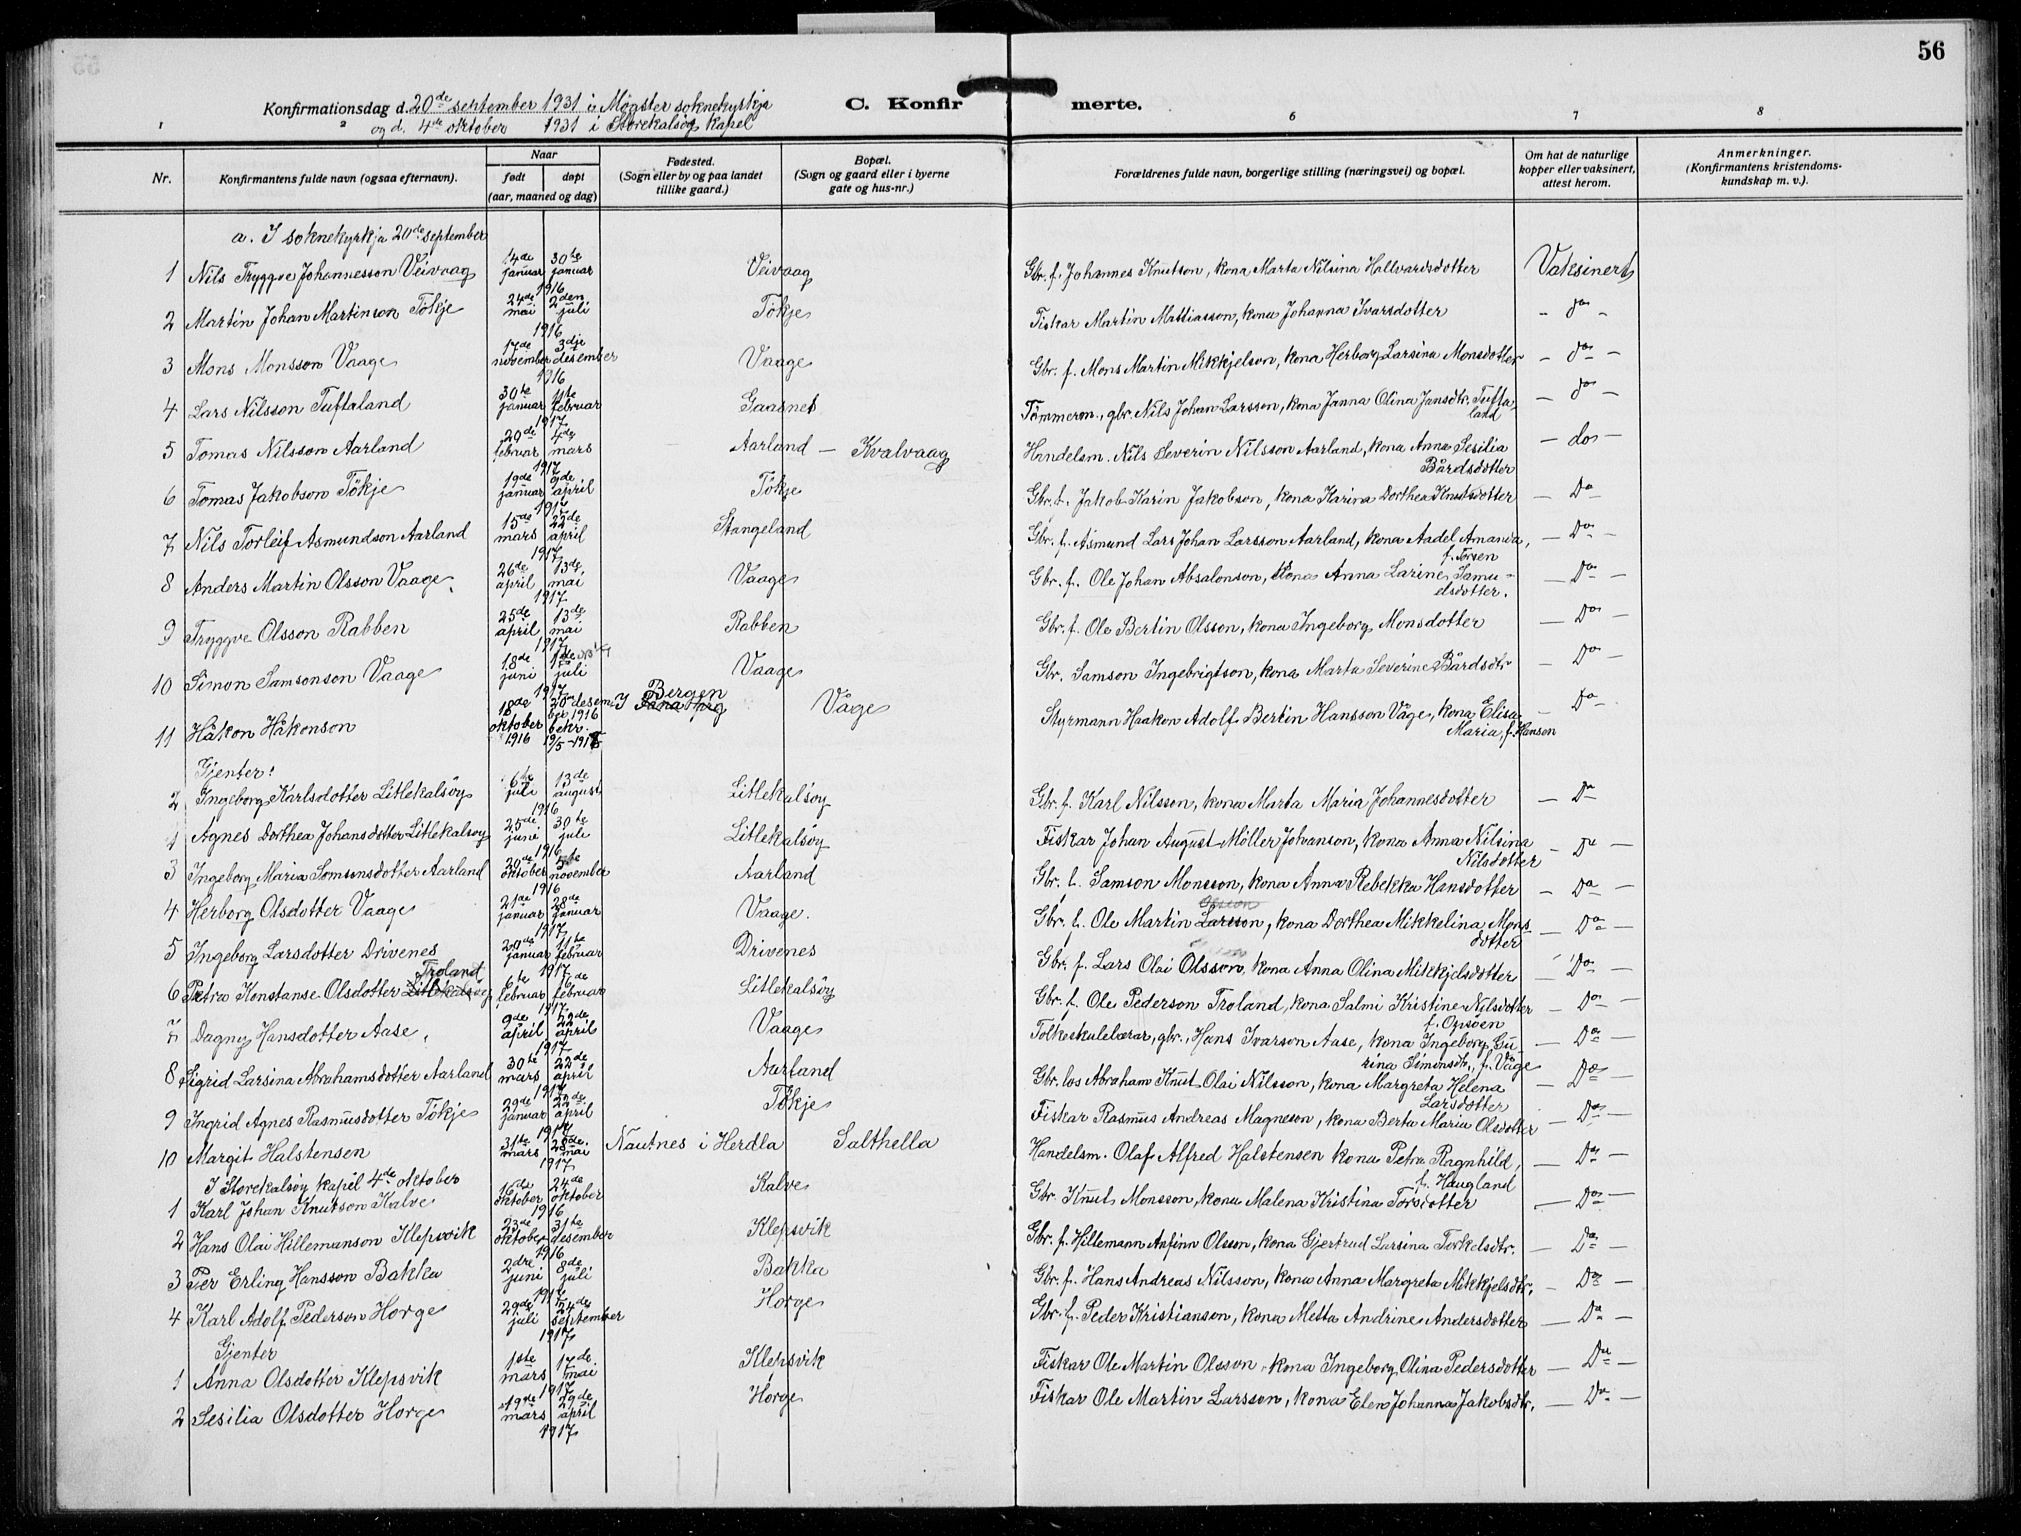 56
Konfirmationsdag d. 20de september 1931 i Møgster soknekyrkja
og d. 4de oktober 1931 i Storekalsøy kapel
C. Konfirmerte.
1 2 6 7 8
Nr.
Konfirmantens fulde navn (ogsaa efternavn).
Naar
født døpt
(aar, maaned og dag)
Fødested.
(Sogn eller by og paa landet
tillike gaard.)
Bopæl.
(Sogn og gaard eller i byerne
gate og hus-nr.)
Forældrenes fulde navn, borgerlige stilling (næringsvei) og bopæl.
Om hat de naturlige
kopper eller vaksinert,
attest herom.
Anmerkninger.
(Konfirmantens kristendoms-
kundskap m. v.).
a. I soknekyrkja 20de september
1 Nils Tryggve Johannesson Veivaag 14de januar 30te januar 1916 Veivaag Gbr. f. Johannes Knutson, kona Marta Nilsina Hallvardsdotter Vaksinert
2 Martin Johan Martinson Tökje 24de mai 2den juli 1916 Tökje Fiskar Martin Mattiasson, kona Johanna Ivarsdotter - do -
3 Mons Monsson Vaage 17de november 3dje desember 1916 Vaage Gbr. f. Mons Martin Mikkjelson, kona Herborg Larsina Monsdotter - do -
4 Lars Nilsson Tuftaland 30te januar 11te februar 1917 Gaasnes Tømmerm., gbr. Nils Johan Larsson, kona Janna Olina Jansdtr. Tuftaland - do -
5 Tomas Nilsson Aarland 20de februar 4de mars 1917 Aarland – Kvalvaag Handelsm. Nils Severin Nilsson Aarland, kona Anna Sesilia Bårdsdotter - do -
6 Tomas Jakobson Tökje 19de januar 9de april 1917 Tökje Gbr. f. Jakob Karin Jakobson, kona Karina Dorthea Knutsdotter - Do -
7 Nils Torleif Asmundson Aarland 15de mars 22de april 1917 Stangeland Gbr. f. Asmund Lars Johan Larsson Aarland, kona Aadel Amanda, f. Torsen - Do -
8 Anders Martin Olsson Vaage 26de april 13de mai 1917 Vaage Gbr. f. Ole Johan Absalonson, kona Anna Larine Samuelsdotter. - Do -
9 Tryggve Olsson Rabben 25de april 13de mai 1917 Rabben Gbr. f. Ole Bertin Olsson, kona Ingeborg Monsdotter - Do -
10 Simon Samsonson Vaage 18de juni juli 1917 Vaage Gbr. Samson Ingebrigtson, kona Marta Severine Bårdsdtr - Do -
11 Håkon Håkonson 18de oktober 1916 20de desember 1916 bekr. 19/5-1918 I Fana Bergen Våge Styrmann Haakon Adolf Bertin Hansson Våge, kona Elisa Maria, f. Hanson - Do -
Gjenter:
2 Ingeborg Karlsdotter Litlekalsöy 6te juli 13de august 1916 Litlekalsöy Gbr. f. Karl Nilsson, kona Marta Maria Johannesdotter - Do
1 Agnes Dorthea Johansdotter Litlekalsöy 25de juni 30te juli 1916 Litlekalsöy Fiskar Johan August Möller Johanson, kona Anna Nilsina Nilsdotter - Do -
3 Ingeborg Maria Samsonsdotter Aarland 20de oktober 5te november 1916 Aarland Gbr. f. Samson Monsson, kona Anna Rebekka Hansdotter - Do -
4 Herborg Olsdotter Vaage 21de januar 28de januar 1917 Vaage. Gbr. f. Ole Martin Larsson Olsson, kona Dorthea Mikkelina Monsdotter - Do -
5 Ingeborg Larsdotter Drivenes 20de januar 11te februar 1917 Drivenes Gbr. f. Lars Olai Olsson, kona Anna Olina Mikkjelsdotter - Do -
6 Petra Konstanse Olsdotter Litlekalsöy Troland 6te februar februar 1917 Litlekalsöy Gbr. f. Ole Pederson Troland, kona Salmi Kristine Nilsdotter f. Opsöen - Do -
7 Dagny Hansdotter Aase 9de april 22de april 1917 Vaage Folkeskulelærar, gbr., Hans Ivarson Aase, kona Ingeborg Gurina Simonsdtr., f. Våge - Do -
8 Sigrid Larsina Abrahamsdotter Aarland 30te mars 22de april 1917 Aarland Gbr. los Abraham Knut Olai Nilsson, kona Margreta Helena Larsdotter - Do -
9 Ingrid Agnes Rasmusdotter Tökje 29de januar 22de april 1917 Tökje Fiskar Rasmus Andreas Magneson, kona Berta Maria Olsdotter - Do -
10 Margit Halstensen 31te mars 28de mai 1917 Nautnes i Herdla Salthella Handelsm. Olaf Alfred Halstensen kona Petra Ragnhild, f. Haugland - Do -
I Storekalsöy kapel 4de oktober
1 Karl Johan Knutson Kalve oktober 24de oktober 1916 Kalve Gbr. Knut Monsson, kona Malena Kristina Torsdotter - Do -
2 Hans Olai Hillemanson Klepsvik 23de oktober 31te desember 1916 Klepsvik Gbr. f. Hillemann Anfinn Olsson, kona Gjertrud Larsina Torkelsdtr. - Do -
3 Per Erling Hansson Bakka 2dre juni 8de juli Bakka Gbr. f. Hans Andreas Nilsson, kona Anna Margreta Mikkjelsdtr. - Do -
4 Karl Adolf Pederson Horge 29de juli 24de september 1917 Horge Gbr. f. Peder Kristianson, kona Metta Andrine Andersdotter - Do -
Gjenter
1 Anna Olsdotter Klepsvik 1ste mars 17de mai 1917 Klepsvik Fiskar Ole Martin Olsson, kona Ingeborg Olina Pedersdotter - Do -
2 Sesilia Olsdotter Horge 19de mars 29de april 1917 Horge Fiskar Ole Martin Larsson, kona Elen Johanna Jakobsdtr. - Do -